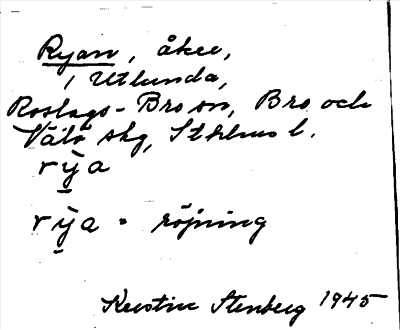 Ryan, åker,
i Utlunda,
Roslags-Bro sn, Bro och
Vätö skg, Sthlms l.
rỳa
rỳa = röjning
Kerstin Stenberg 1945